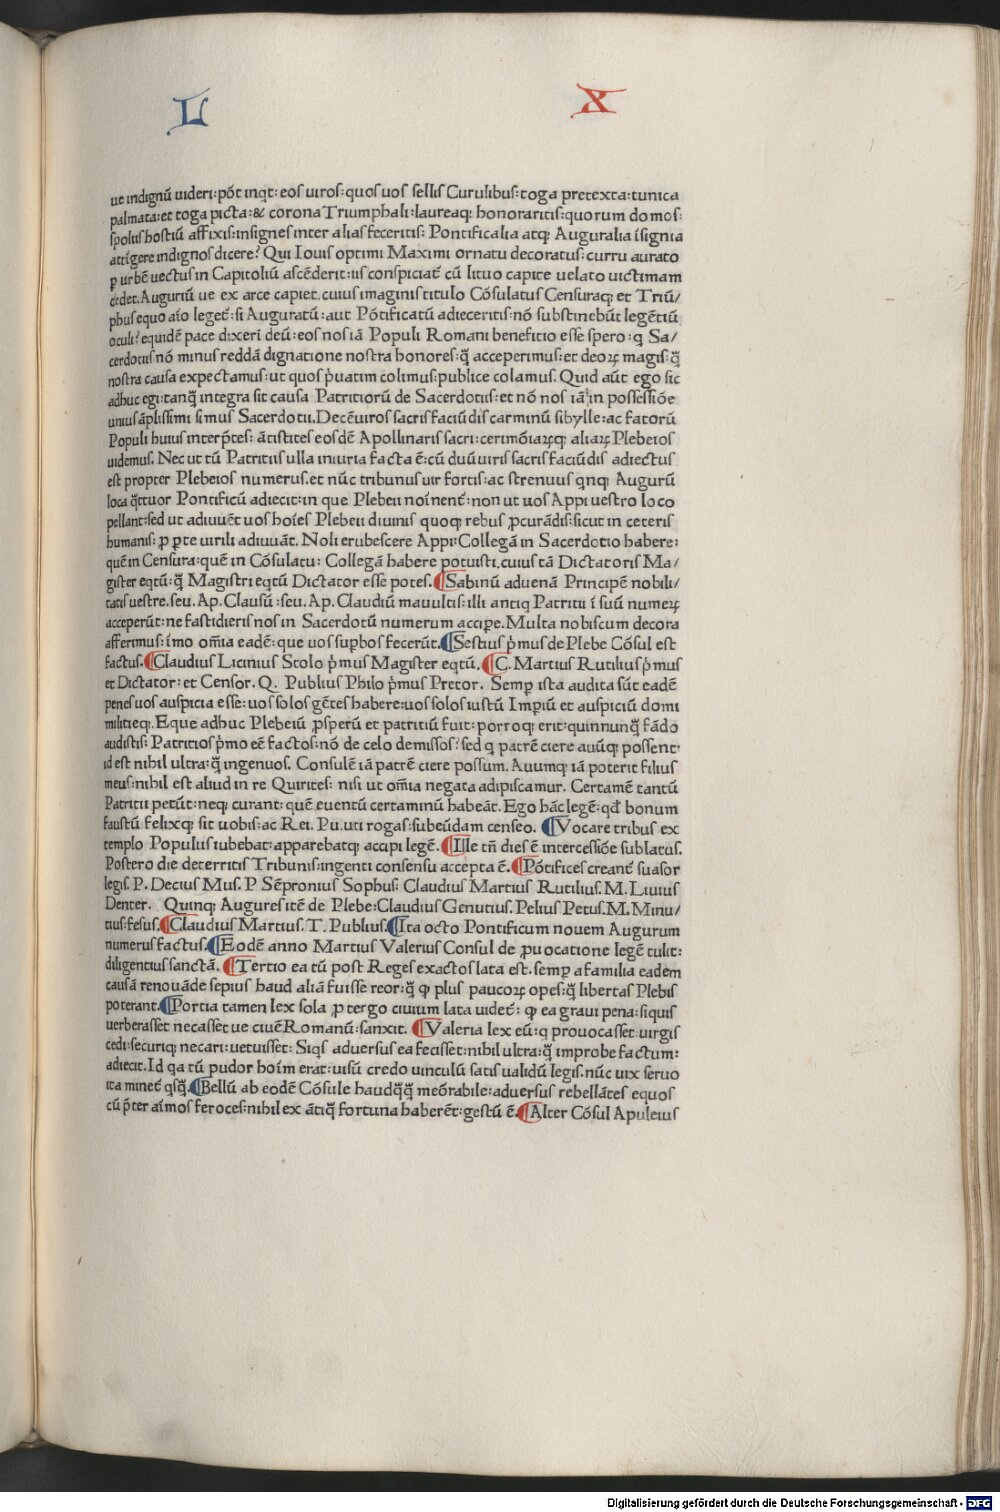 L X
ue indignũ uideri: põt inqt: eos uiros: quos uos sellis Curulibus: toga pretexta: tunica
palmata: et toga picta: & corona Triumphali: laureaq; honoraritis: quorum domos:
spoliis hostiũ affixis: insignes inter alias feceritis: Pontificalia atq; Auguralia ĩsignia
attĩgere indignos dicere? Qui Iouis optimi Maximi ornatu decoratus: curru aurato
ꝑ urbẽ uectus in Capitoliũ ascẽderit: iis conspiciat̃ cũ lituo capite uelato uictimam
cedet. Auguriũ ue ex arce capiet. cuius imaginis titulo Cõsulatus Censuraq; et Triũ/
phus equo aĩo leget̃: si Auguratũ: aut Põtificatũ adieceritis: nõ substinebũt legẽtiũ
oculi? equidẽ pace dixerĩ deũ: eos nos iã Populi Romani beneficio esse spero: q Sa/
cerdotiis nõ minus reddã dignatione nostra honores: q̃ acceperimus: et deoꝝ magis: q̃
nostra causa expectamus: ut quos p̃uatim colimus: publice colamus. Quid aũt ego sic
adhuc egi: tanq̃ integra sit causa Patritiorũ de Sacerdotiis: et nõ nos iã in possessiõe
unius ãplissimi simus Sacerdotii. Decẽuiros sacris faciũdis carminũ sibylle: ac fatorũ
Populi huius interp̃tes: ãtistites eosdẽ Apollinaris sacri: cerimõiaꝝq; aliaꝝ Plebeios
uidemus. Nec ut tũ Patritiis ulla iniuria facta ẽ: cũ duũuiris sacris faciũdis adiectus
est propter Plebeios numerus. et nũc tribunus uir fortis: ac strenuus qnq; Augurũ
loca q̃ttuor Pontificũ adiecit: in que Plebeii noĩnent̃: non ut uos Appi uestro loco
pellant: sed ut adiuuẽt uos hoĩes Plebeii diuinis quoq; rebus ꝓcurãdis: sicut in ceteris
humanis: ꝓ ꝑte uirili adiuuãt. Noli erubescere Appi: Collegã in Sacerdotio habere:
quẽ in Censura: quẽ in Cõsulatu: Collegã habere potuisti. cuius tã Dictatoris Ma/
gister eqtũ: q̃ Magistri eqtũ Dictator esse potes. ¶Sabinũ aduenã Principẽ nobili/
tatis uestre. seu. Ap. Clausũ: seu. Ap. Claudiũ mauultis: illi antiq Patritii ĩ suũ numeꝝ
acceperũt: ne fastidieris nos in Sacerdotũ numerum accipe. Multa nobiscum decora
afferimus: ĩmo om̃ia eadẽ: que uos suꝑbos fecerũt. ¶Sestius p̃mus de Plebe Cõsul est
factus. ¶Claudius Licinius Stolo p̃mus Magister eqtũ. ¶C. Martius Rutilius p̃mus
et Dictator: et Censor. Q. Publius Philo p̃mus Pretor. Semꝑ ista audita sũt eadẽ
penes uos auspicia esse: uos solos gẽtes habere: uos solos iustũ Imꝑiũ et auspiciũ domi
militieq;. Eque adhuc Plebeiũ ꝓsperũ et patritiũ fuit: porroq; erit: quinnunq̃ fãdo
audistis: Patritios p̃mo eẽ factos: nõ de celo demissos? sed q patrẽ ciere auũq; possent:
id est nihil ultra: q̃ ingenuos. Consulẽ iã patrẽ ciere possum. Auumq; iã poterit filius
meus: nihil est aliud in re Quirites: nisi ut om̃ia negata adipiscamur. Certamẽ tantũ
Patritii petũt: neq; curant: quẽ euentũ certaminũ habeãt. Ego hãc legẽ: qd̃ bonum
faustũ felixq; sit uobis: ac Rei. Pu. uti rogas: subeũdam censeo. ¶Vocare tribus ex
templo Populus iubebat: apparebatq; accipi legẽ. ¶Ille tñ dies ẽ intercessiõe sublatus.
Postero die deterritis Tribunis: ingenti consensu accepta ẽ. ¶Põtifices creant̃ suasor
legis. P. Decius Mus. P Sẽpronius Sophus: Claudius Martius Rutilius. M. Liuius
Denter. Quinq; Augures itẽ de Plebe: Claudius Genutius. Pelius Petus. M. Minu/
tius: fesus. ¶Claudius Martius. T. Publius. ¶Ita octo Pontificum nouem Augurum
numerus factus. ¶Eodẽ anno Martius Valerius Consul de ꝓuocatione legẽ tulit:
diligentius sanctã. ¶Tertio ea tũ post Reges exactos lata est. semꝑ a familia eadem
causã renouãde sepius haud aliã fuisse reor: q̃ ꝙ plus paucoꝝ opes: q̃ libertas Plebis
poterant. ¶Portia tamen lex sola ꝓ tergo ciuium lata uidet̃: ꝙ ea graui pena: siquis
uerberasset necasset ue ciuẽ Romanũ: sanxit. ¶Valeria lex eũ: q prouocasset uirgis
cedi: securiq; necari: uetuisset: Siqs aduersus ea fecisset: nihil ultra: q̃ improbe factum:
adiecit. Id qa tũ pudor hoĩm erat: uisũ credo uinculũ satis ualidũ legis. nũc uix seruo
ita minet̃ qsq̃. ¶Bellũ ab eodẽ Cõsule haudq̃q̃ meõrabile: aduersus rebellãtes equos
cũ p̃ter aĩmos feroces: nihil ex ãtiq̃ fortuna haberẽt: gestũ ẽ. ¶Alter Cõsul Apuleius
Digitalisierung gefördert durch die Deutsche Forschungsgemeinschaft - DFG